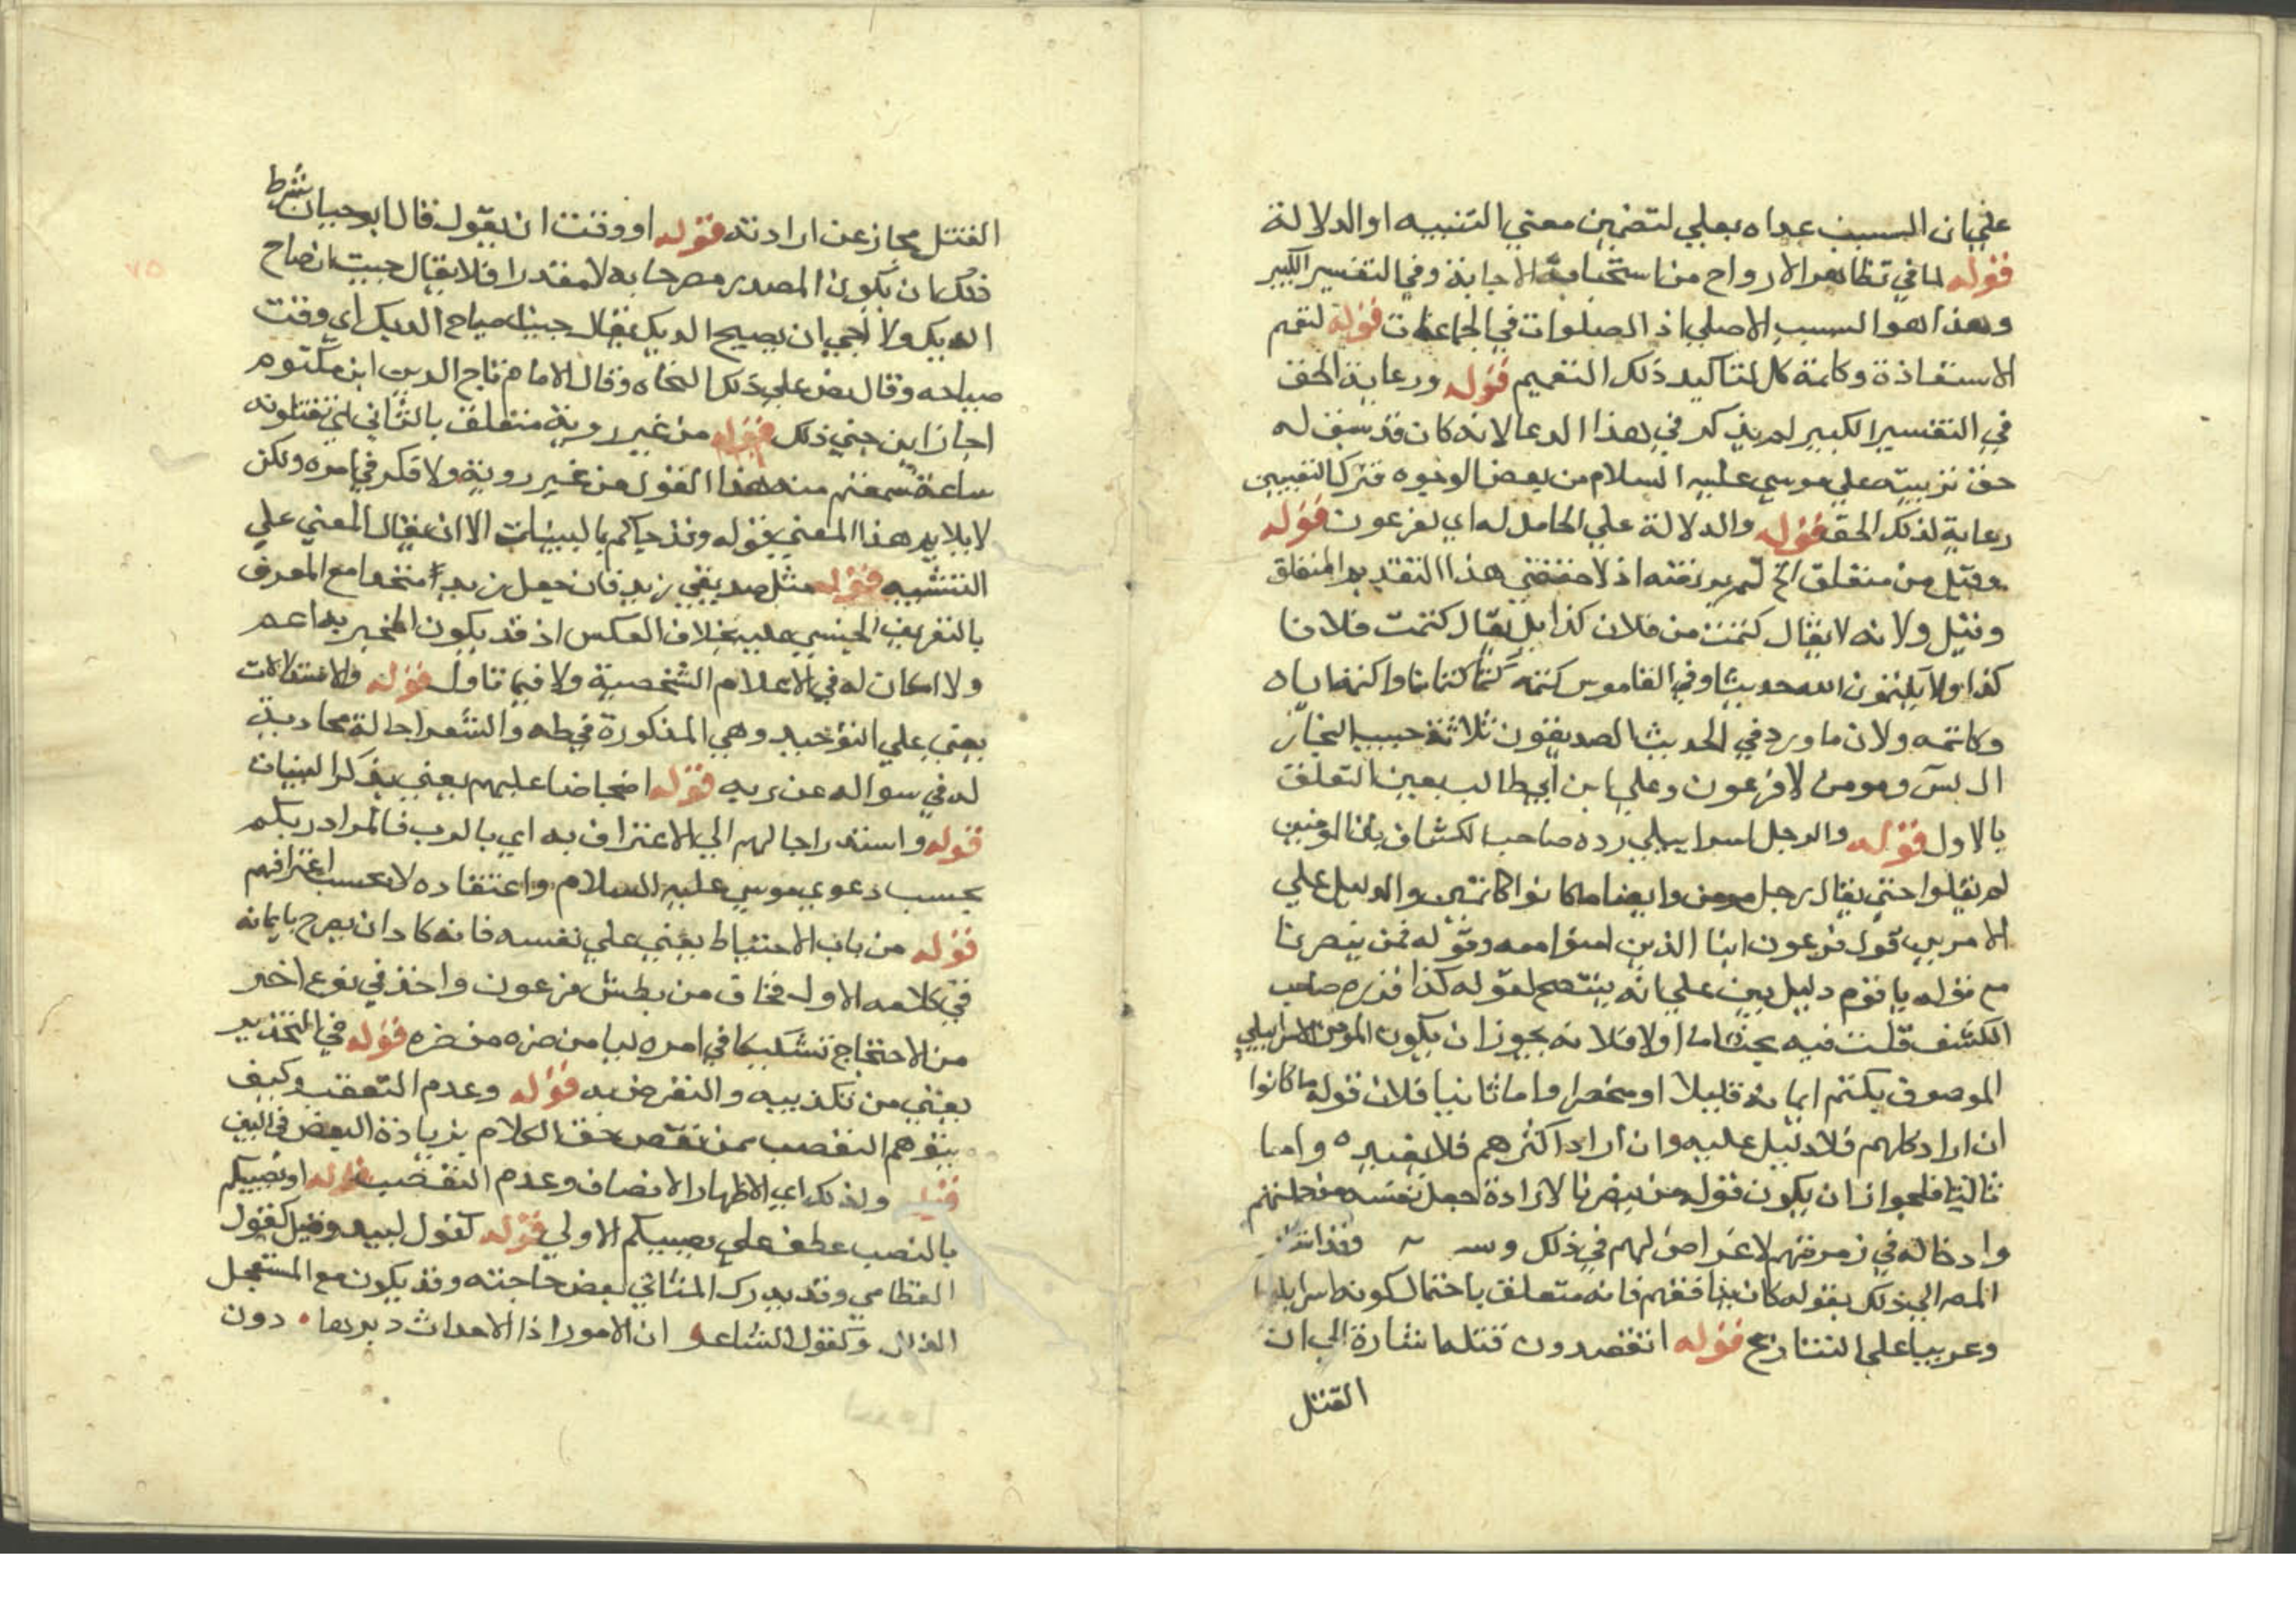 علي ان السبب عداه بعلي لتضمين معني التنبيه او الدلالة
قوله لما في تظاهر الارواح من استجابة الاجابة وفي التفسير الكبير
وهذا هو السبب الاصلي اذ الصلوات في الجماعات قوله لتعم
الاستعاذة وكلمة كل لتاكيد ذلك التعميم قوله ورعاية الحق
في التفسير الكبير لم يذكر في هذا الدعا لانه كان قد سبق له
حق تربيته علي موسي عليه السلام من بعض الوجوه فترك التعيين
رعاية لذلك الحق قوله والدلالة علي الحامل له اي لفرعون قوله
وقيل من متعلق الخ لم يرتضه اذ لا مقتضي هذا التقديم المتعلق
وقيل ولانه لا يقال كتمت من فلان كذا بل يقال كتمت فلانا
كذا ولا يكتمون الله حديثا وفي القاموس كتمه كتما كتمانا واكتمه اياه
وكاتمه ولان ما ورد في الحديث الصديقون ثلاثة حبيب النجار
ال يس ومومن ال فرعون وعلي ابن ابي طالب يعين التعلق
بالاول قوله والرجل اسراييلي رده صاحب الكشاف بان المومنين
لم يقلوا حتي يقال رجل مومن وايضا ما كانوا كاتمين والدليل علي
الامرين قول فرعون ابنا الذين امنوا معه وقوله فمن ينصرنا
مع قوله يا قوم دليل بين علي انه ينتصح لقومه كذا قرره صاحب
الكشف قلت فيه بحث اما اولا فلانه يجوز ان يكون المومن الاسراييلي
الموصوف بكتم ايمانه قليلا او منحصرا واما ثانيا فلان قوله ما كانوا
ان اراد كلهم فلا دليل عليه وان اراد اكثرهم فلا يفيده واما
ثالثا فلجواز ان يكون قوله من ينصرنا لارادة جعل نفسه من جملتهم
وادخاله في زمرتهم لاغراض لهم في ذلك وقد اشار
المص الي ذلك بقوله كان ينافقهم فانه متعلق باحتمال كونه اسراييليا
وعربيا علي التنازع قوله اتقصدون قتله اشارة الي ان
القتل
القتل مجاز عن ارادته قوله او وقت ان يقول قال ابو حيان شرط
ذلك ان يكون المصدر مصرحا به لا مقدرا فلا يقال جيت ان صاح
الديك ولا اجي ان يصيح الديك يقال جيت صياح الديك اي وقت
صياحه وقال نص علي ذلك النحاة وقال الامام تاج الدين ابن مكتوم
اجاز ابن جني ذلك قوله من غير روية متعلق بالثاني اي تقتلونه
ساعة سمعتم منه هذا القول من غير روية ولا فكر في امره ولكن
لا يلايم هذا المعني قوله وقد جاكم بالبينات الا ان يقال المعني علي
التشبيه قوله مثل صديقي زيد فان جعل زيد متحدا مع المعرف
بالتعريف الجنسي عليه بخلاف العكس اذ قد يكون المخبر به اعم
ولا امكان له في الاعلام الشخصية ولا فيما تاول قوله والاستدلالات
يعني علي التوحيد وهي المذكورة في طه والشعرا حالة محادثة
له في سواله عن ربه قوله احتجاجا عليهم يعني بذكر البينات
قوله واستدراجا لهم الي الاعتراف به اي بالرب فالمراد ربكم
بحسب دعوي موسي عليه السلام واعتقاده لا بحسب اعترافهم
قوله من باب الاحتياط يعني علي نفسه فانه كاد ان يصرح بايمانه
في كلامه الاول فخاف من بطش فرعون واخذ في نوع اخر
من الاحتجاج تشكيكا في امره ليامن ضره من ضره قوله في التحذير
يعني من تكذيبه والتعرض به قوله وعدم التعصب وكيف
يتوهم التعصب ممن نقص حق الكلام بزيادة البعض في البين
قيل ولذلك اي لاظهار الانصاف وعدم التعصب قوله او نصيبكم
بالنصب عطف علي يصيبكم الاولي قوله كقول لبيد وقيل كقول
القطامي وقد يدرك المتاني بعض حاجته وقد يكون مع المستعجل
الزلل وكقول الشاعر ان الامور اذا الاحداث دبرها • دون
٧٥